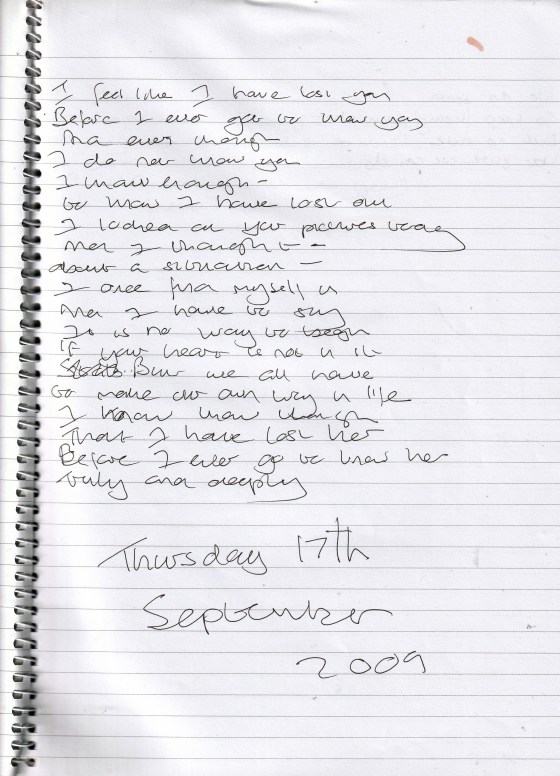 I feel like I have lost you
Before I ever got to know you
And even though
I do not know you
I know enough -
to know I have lost out
I looked at your pictures today
And I thought -
about a situation -
I once find myself in
And I have to say
It is no way to begin
If your heart is not in it
But we all have
to make our own way in life
I know now though
That I have lost her
Before I ever go to know her
truly and deeply
Thursday 17th
September
2009